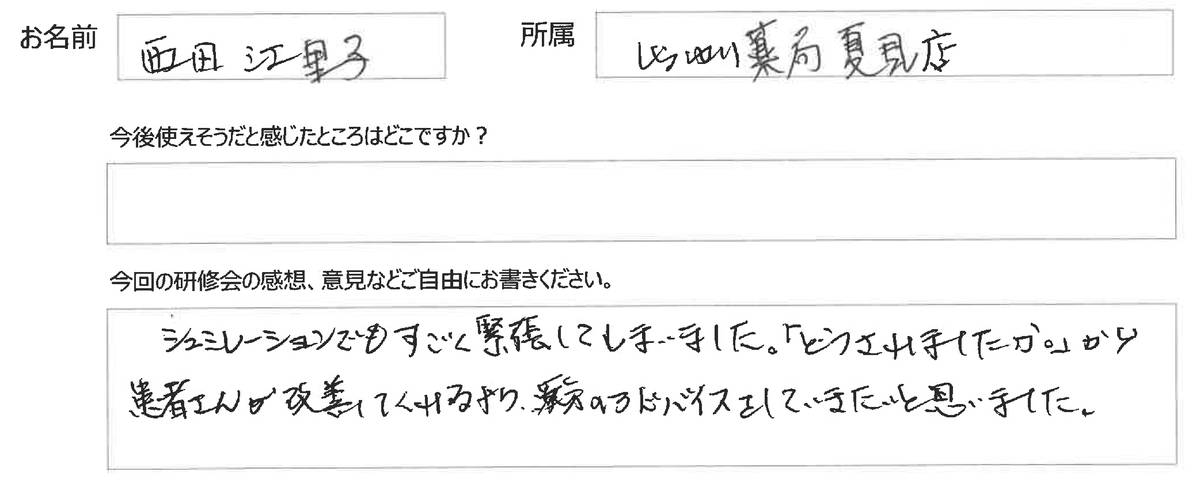 お名前 西田 江里子 所属 薬局 夏見店
今後使えそうだと感じたところはどこですか？
今回の研修会の感想、意見などご自由にお書きください。
シュミレーションでもすごく緊張してしまいました。「どうされましたか。」から
患者さんが改善してくれるよう、アドバイスをしていきたいと思いました。